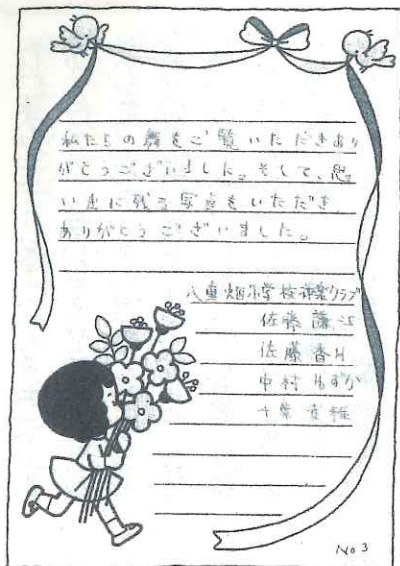 私たちの舞をご覧いただきあり
がとうございました。そして、思
い出に残る写真をいただき、
ありがとうございました。
八重畑小学校神楽クラブ
佐藤
佐藤香
中村
千葉
No 3